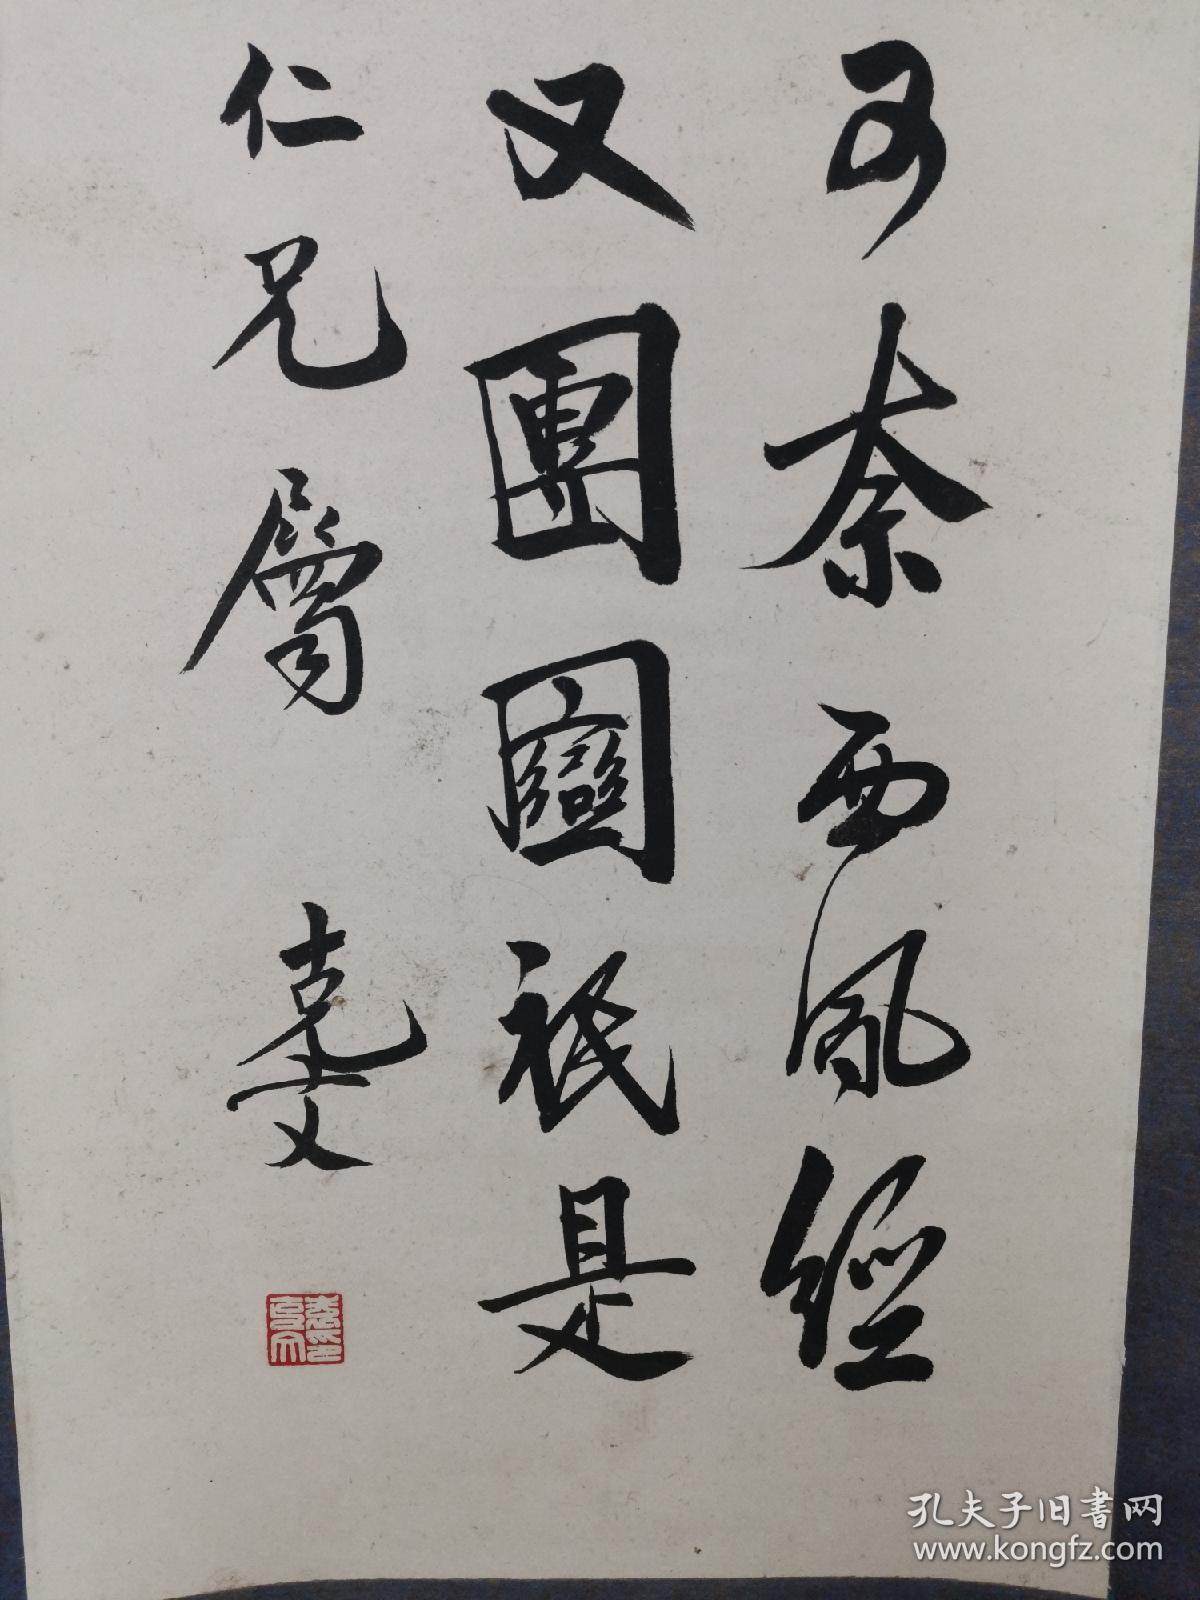 可奈西風經
又團圞祇是
仁兄屬 克文
袁氏克文
孔夫子旧書网
www.kongfz.com